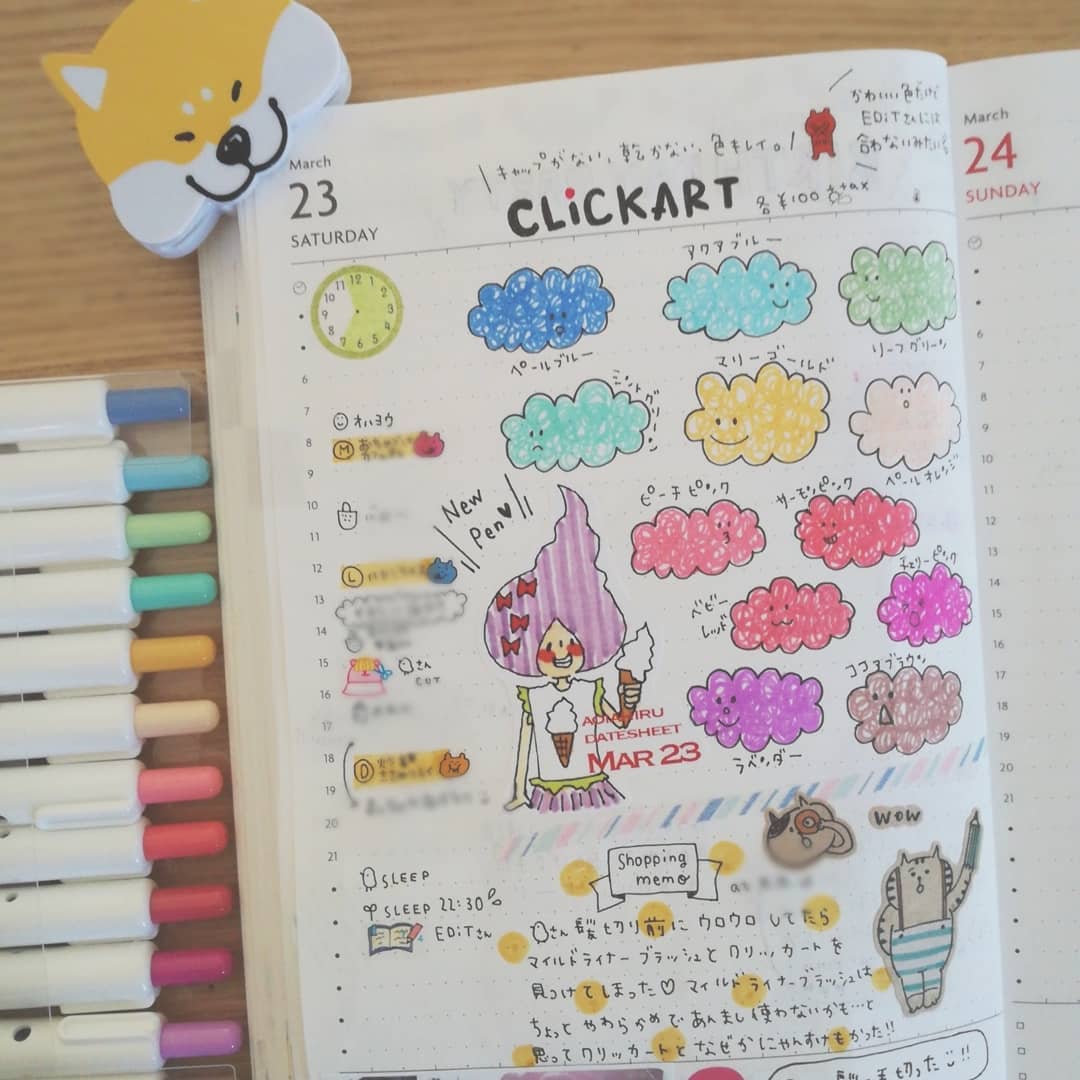 March
23
SATURDAY
\キャップがない、乾かない、色キレイ。/
CLiCKART 各¥100+tax
かわいい色だけど
EDiTさんには
合わないみたい
March
24
SUNDAY
12
1
2
3
4
5
6
7
8
9
10
11
アクアブルー
ペールブルー
リーフグリーン
ミントグリーン
マリーゴールド
ペールオレンジ
ピーチピンク
サーモンピンク
ベビーレッド
チェリーピンク
ラベンダー
ココアブラウン
New
Pen♥
6
7 オハヨウ
8 M
9
10
11
12 L
13
14
15 さん
CUT
16
17
18 D
19
20
21
SLEEP
SLEEP 22:30
EDiTさん
AOYAMA
DATESHEET
MAR 23
6
7
8
9
10
11
12
13
14
15
16
17
18
19
20
21
WOW
Shopping
memo
at
さん髪切り前にウロウロしてたら
マイルドライナーブラッシュとクリッカートを
見つけてしまった♡マイルドライナーブラッシュは
ちょっとやわらかめであんまし使わないかも…と
思ってクリッカートとなぜかにゃんすけもかった!!
髪も切った!!